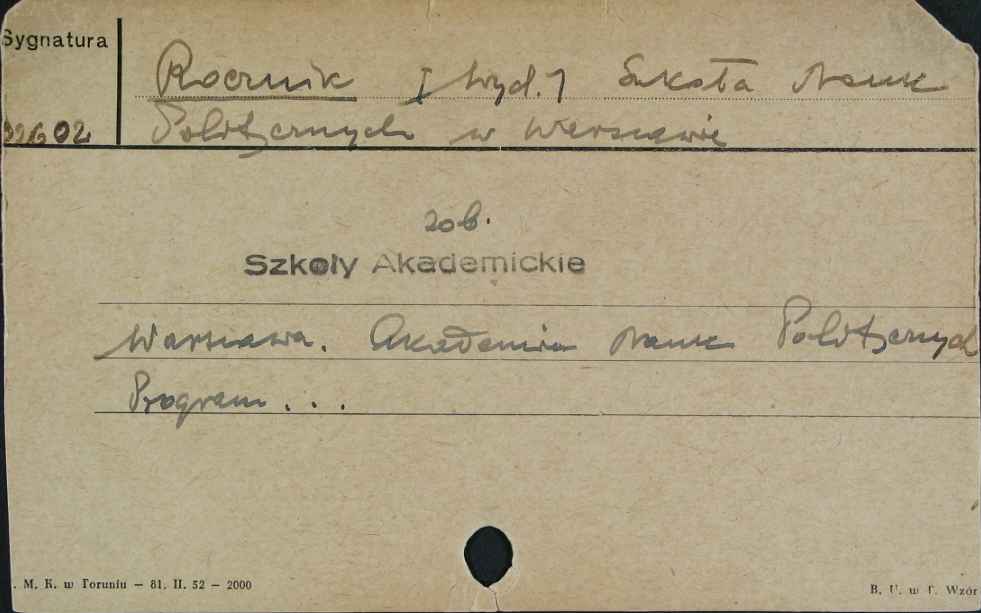 Sygnatura
Rocznik I Wyd. 1 Szkoła Nauk
02
Politycznych w Warszawie
zob.
Szkoły Akademickie
Warszawa. Akademia Nauk Politycznych
Program...
. M. K. w Toruniu — 81. II. 52 — 2000
B. U. w T. Wzór